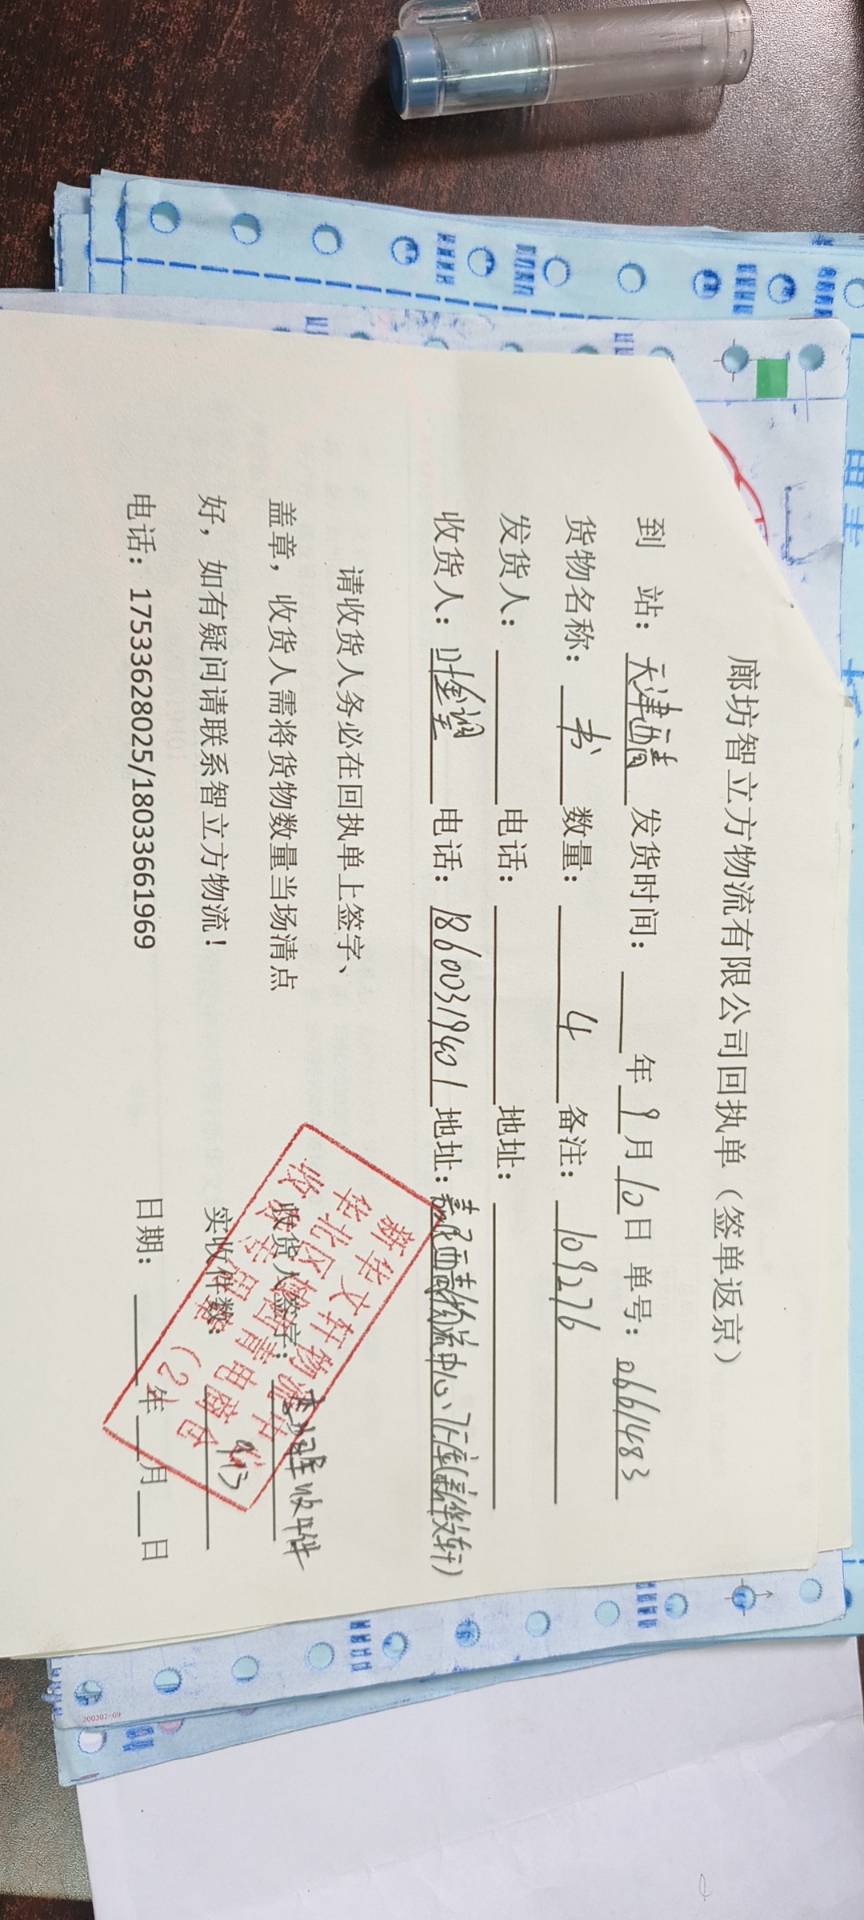 廊坊智立方物流有限公司回执单（签单返京）
到 站：天津西青 发货时间： 年 9 月 10 日 单号：0661483
货物名称： 书 数量： 4 备注：109276
发货人： 电话： 地址：
收货人：叶 电话：18600319401 地址：西青物流中心 库（新华文轩）
请收货人务必在回执单上签字、
盖章，收货人需将货物数量当场清点 收货人签字： 收4件
好，如有疑问请联系智立方物流！ 实收件数： 9/13
电话：17533628025/18033661969 日期： 年 月 日
新华文轩物流中心
华北区 青电商仓
收货专用章（2）
200307-09